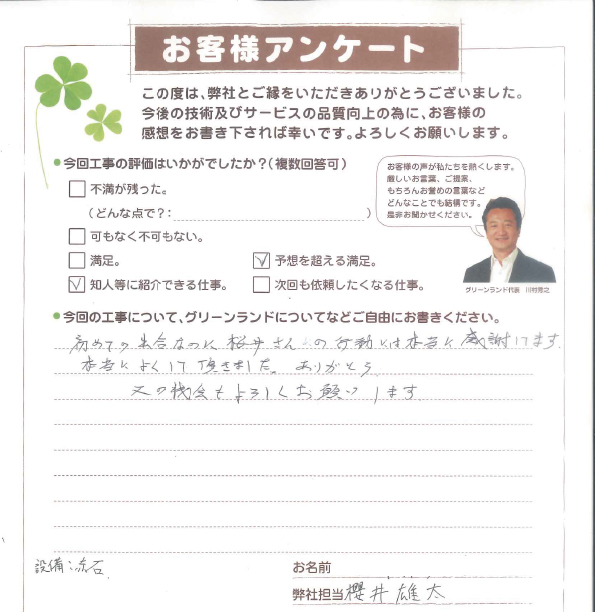 お客様アンケート
この度は、弊社とご縁をいただきありがとうございました。
今後の技術及びサービスの品質向上の為に、お客様の
感想をお書き下されば幸いです。よろしくお願いします。
●今回工事の評価はいかがでしたか?(複数回答可)
不満が残った。
(どんな点で?: )
可もなく不可もない。
満足。
予想を超える満足。
知人等に紹介できる仕事。
次回も依頼したくなる仕事。
お客様の声が私たちを熱くします。
厳しいお言葉、ご提案、
もちろんお誉めの言葉など
どんなことでも結構です。
是非お聞かせください。
グリーンランド代表 川村秀之
●今回の工事について、グリーンランドについてなどご自由にお書きください。
初めての出会なのに桜井さんの行動には本当に感謝してます。
本当によくして頂きました。ありがとう
又の機会もよろしくお願いします
設備:赤石
お名前
弊社担当 櫻井雄太